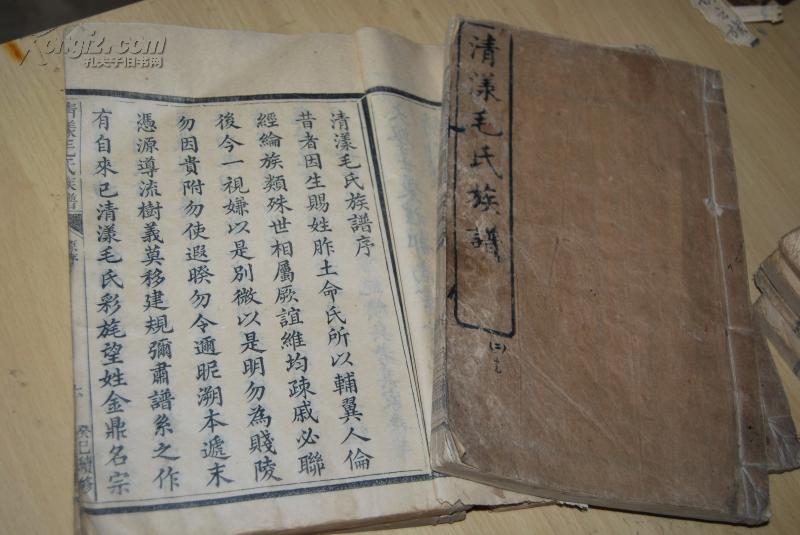 清漾毛氏族譜序
昔者因生賜姓胙土命氏所以輔翼人倫
經綸族類殊世相屬厥誼維均疎戚必聯
後今一視嫌以是別微以是明勿為賤陵
勿因貴附勿使遐暌勿令邇昵溯本遞末
憑源導流樹義莫移建規彌肅譜系之作
有自來已清漾毛氏彩旄望姓金鼎名宗
清漾毛氏族譜
原序
六
癸巳續修
清漾毛氏族譜
(二)
Kongfz.com
孔夫子旧书网